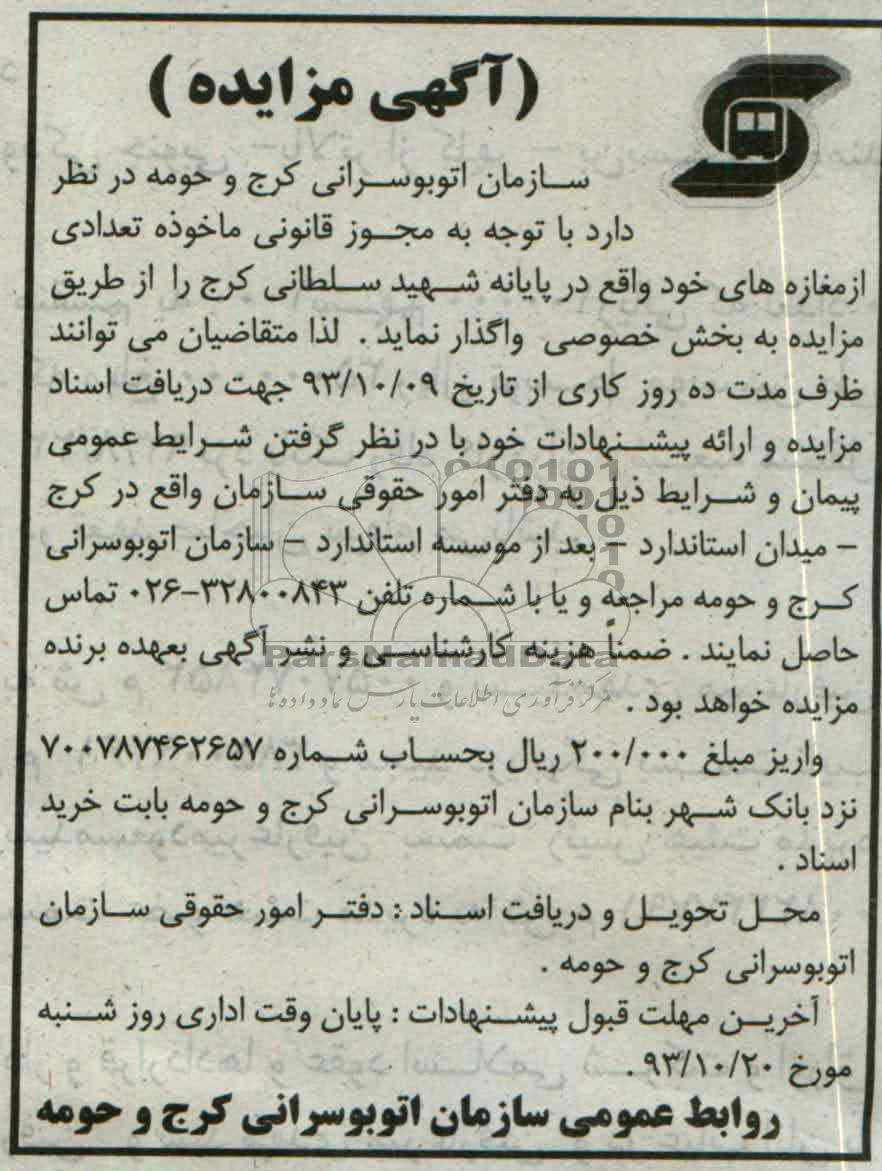 (آگهی مزایده )
سازمان اتوبوسرانی کرج و حومه در نظر
دارد با توجه به مجوز قانونی ماخوذه تعدادی
ازمغازه های خود واقع در پایانه شهید سلطانی کرج را از طریق
مزایده به بخش خصوصی واگذار نماید . لذا متقاضیان می توانند
ظرف مدت ده روز کاری از تاریخ ۹۳/۱۰/۰۹ جهت دریافت اسناد
مزایده و ارائه پیشنهادات خود با در نظر گرفتن شرایط عمومی
پیمان و شرایط ذیل به دفتر امور حقوقی سازمان واقع در کرج
– میدان استاندارد – بعد از موسسه استاندارد – سازمان اتوبوسرانی
کرج و حومه مراجعه و یا با شماره تلفن ۳۲۸۰۰۸۴۳-۰۲۶ تماس
حاصل نمایند . ضمناً هزینه کارشناسی و نشر آگهی بعهده برنده
مزایده خواهد بود .
واریز مبلغ ۲۰۰/۰۰۰ ریال بحساب شماره ۷۰۰۷۸۷۴۶۲۶۵۷
نزد بانک شهر بنام سازمان اتوبوسرانی کرج و حومه بابت خرید
اسناد .
محل تحویل و دریافت اسناد : دفتر امور حقوقی سازمان
اتوبوسرانی کرج و حومه .
آخرین مهلت قبول پیشنهادات : پایان وقت اداری روز شنبه
مورخ ۹۳/۱۰/۲۰ .
روابط عمومی سازمان اتوبوسرانی کرج و حومه
ParsNamadData
مرکز فرآوری اطلاعات پارس نماد داده ها